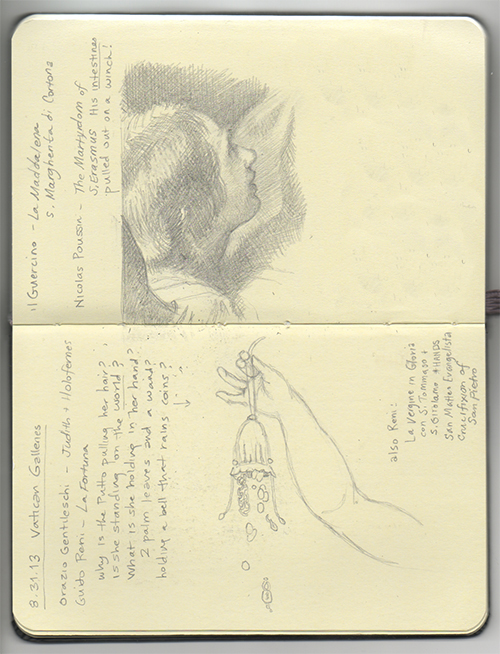 8.31.13 Vatican Galleries
Orazio Gentileschi - Judith + Holofernes
Guido Reni - La Fortuna
why is the Putto pulling her hair?
is she standing on the world?
What is she holding in her hand?
2 palm leaves and a wand?
holding a bell that rains coins?
also Reni:
La Vergine in Gloria
con S. Tommaso +
S. Girolamo * HANDS
San Matteo Evangelista
Crucifixion of
San Pietro
il Guercino - La Maddalena
S. Margherita di Cortona
Nicolas Poussin - The Martyrdom of
S. Erasmus His intestines
pulled out on a winch!